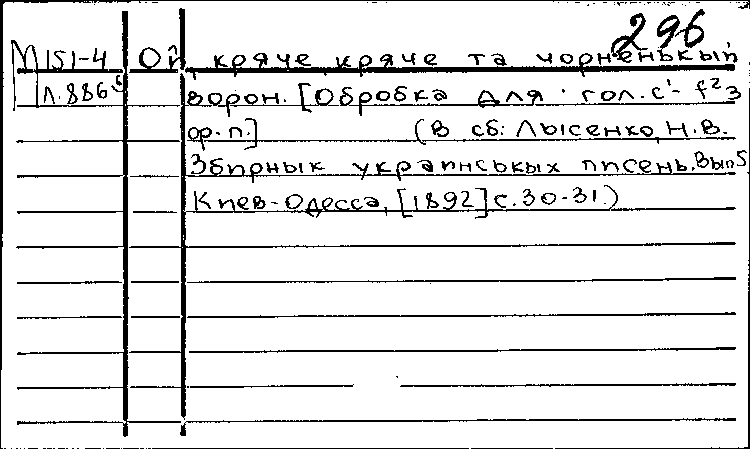 296
М151-4 Ой, кряче, кряче та чорненькый
Л.886⁵ ворон. [Обробка для гол. с¹- f²з
ор. п.] (В сб: Лысенко, Н.В.
Збирнык украинськых писень. Вып 5
Киев-Одесса, [1892] с.30-31.)